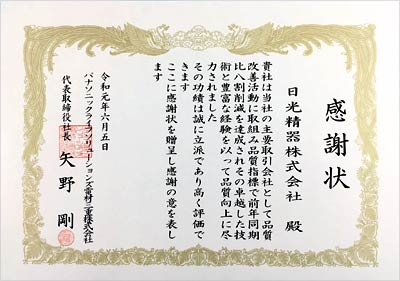 感謝状
日光精器株式会社 殿
貴社は当社の主要取引会社として品質
改善活動に取組み品質指標で前年同期
比八割削減を達成されその卓越した技
術と豊富な経験を以って品質向上に尽
力されました
その功績は誠に立派であり高く評価で
きます
ここに感謝状を贈呈し感謝の意を表し
ます
令和元年六月五日
パナソニックライフソリューションズ電材三重株式会社
代表取締役社長 矢野 剛